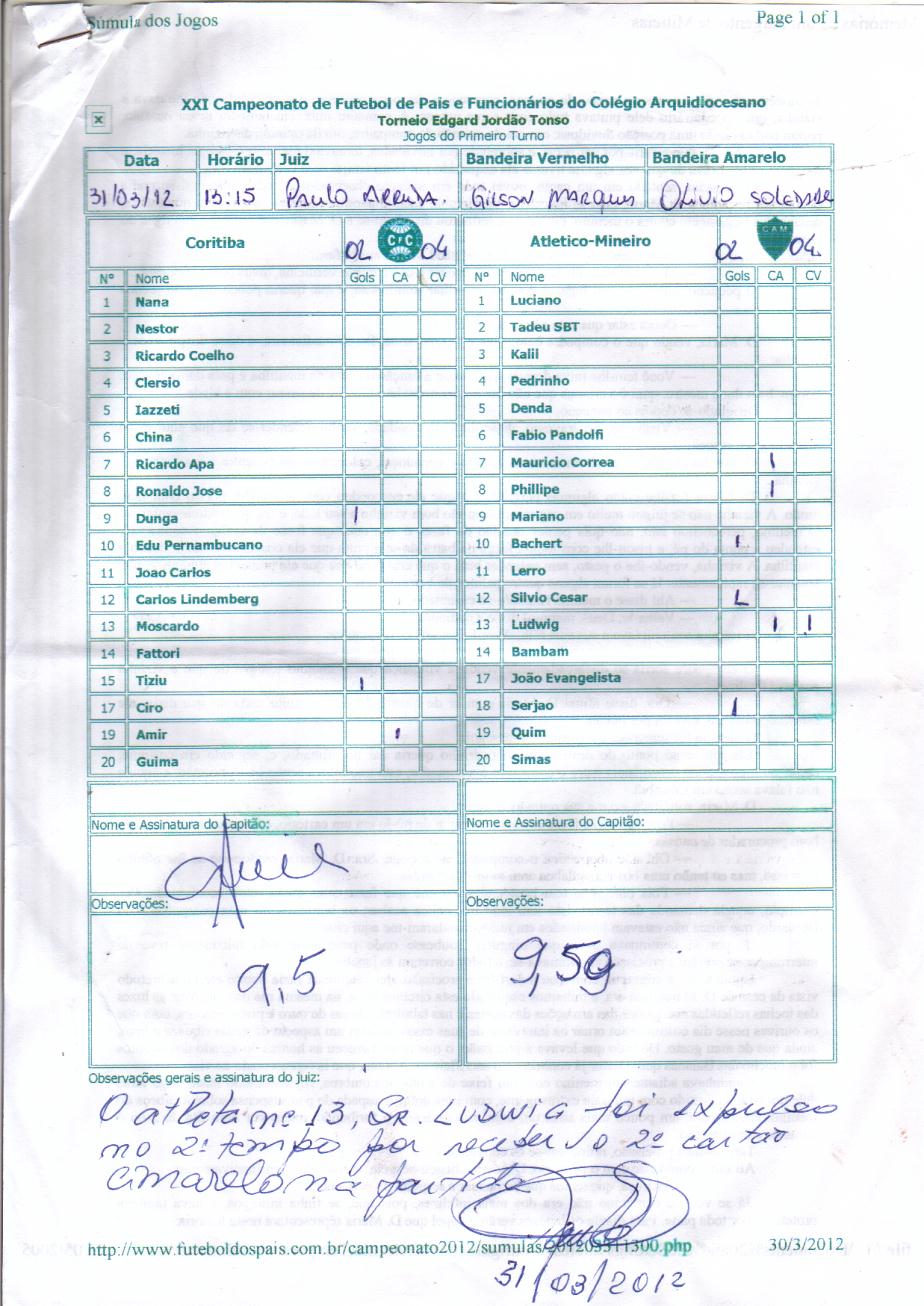 Súmula dos Jogos Page 1 of 1
XXI Campeonato de Futebol de Pais e Funcionários do Colégio Arquidiocesano
Torneio Edgard Jordão Tonso
Jogos do Primeiro Turno
Data Horário Juiz Bandeira Vermelho Bandeira Amarelo
31/03/12 13:15 Paulo Arruda. Gilson Marques Olivio Soledade
Coritiba 02 CFC 04 Atletico-Mineiro 02 CAM 04
Nº Nome Gols CA CV Nº Nome Gols CA CV
1 Nana 1 Luciano
2 Nestor 2 Tadeu SBT
3 Ricardo Coelho 3 Kalil
4 Clersio 4 Pedrinho
5 Iazzeti 5 Denda
6 China 6 Fabio Pandolfi
7 Ricardo Apa 7 Mauricio Correa I
8 Ronaldo Jose 8 Phillipe I
9 Dunga I 9 Mariano
10 Edu Pernambucano 10 Bachert I
11 Joao Carlos 11 Lerro
12 Carlos Lindemberg 12 Silvio Cesar L
13 Moscardo 13 Ludwig I I
14 Fattori 14 Bambam
15 Tiziu I 17 João Evangelista
17 Ciro 18 Serjao I
19 Amir I 19 Quim
20 Guima 20 Simas
Nome e Assinatura do Capitão: Nome e Assinatura do Capitão:
Observações: Observações:
9,5 9,5
Observações gerais e assinatura do juiz:
O atleta nº 13, Sr. Ludwig foi expulso
no 2º tempo por receber o 2º cartão
amarelo na partida
http://www.futeboldospais.com.br/campeonato2012/sumulas/201203311300.php 30/3/2012
31/03/2012